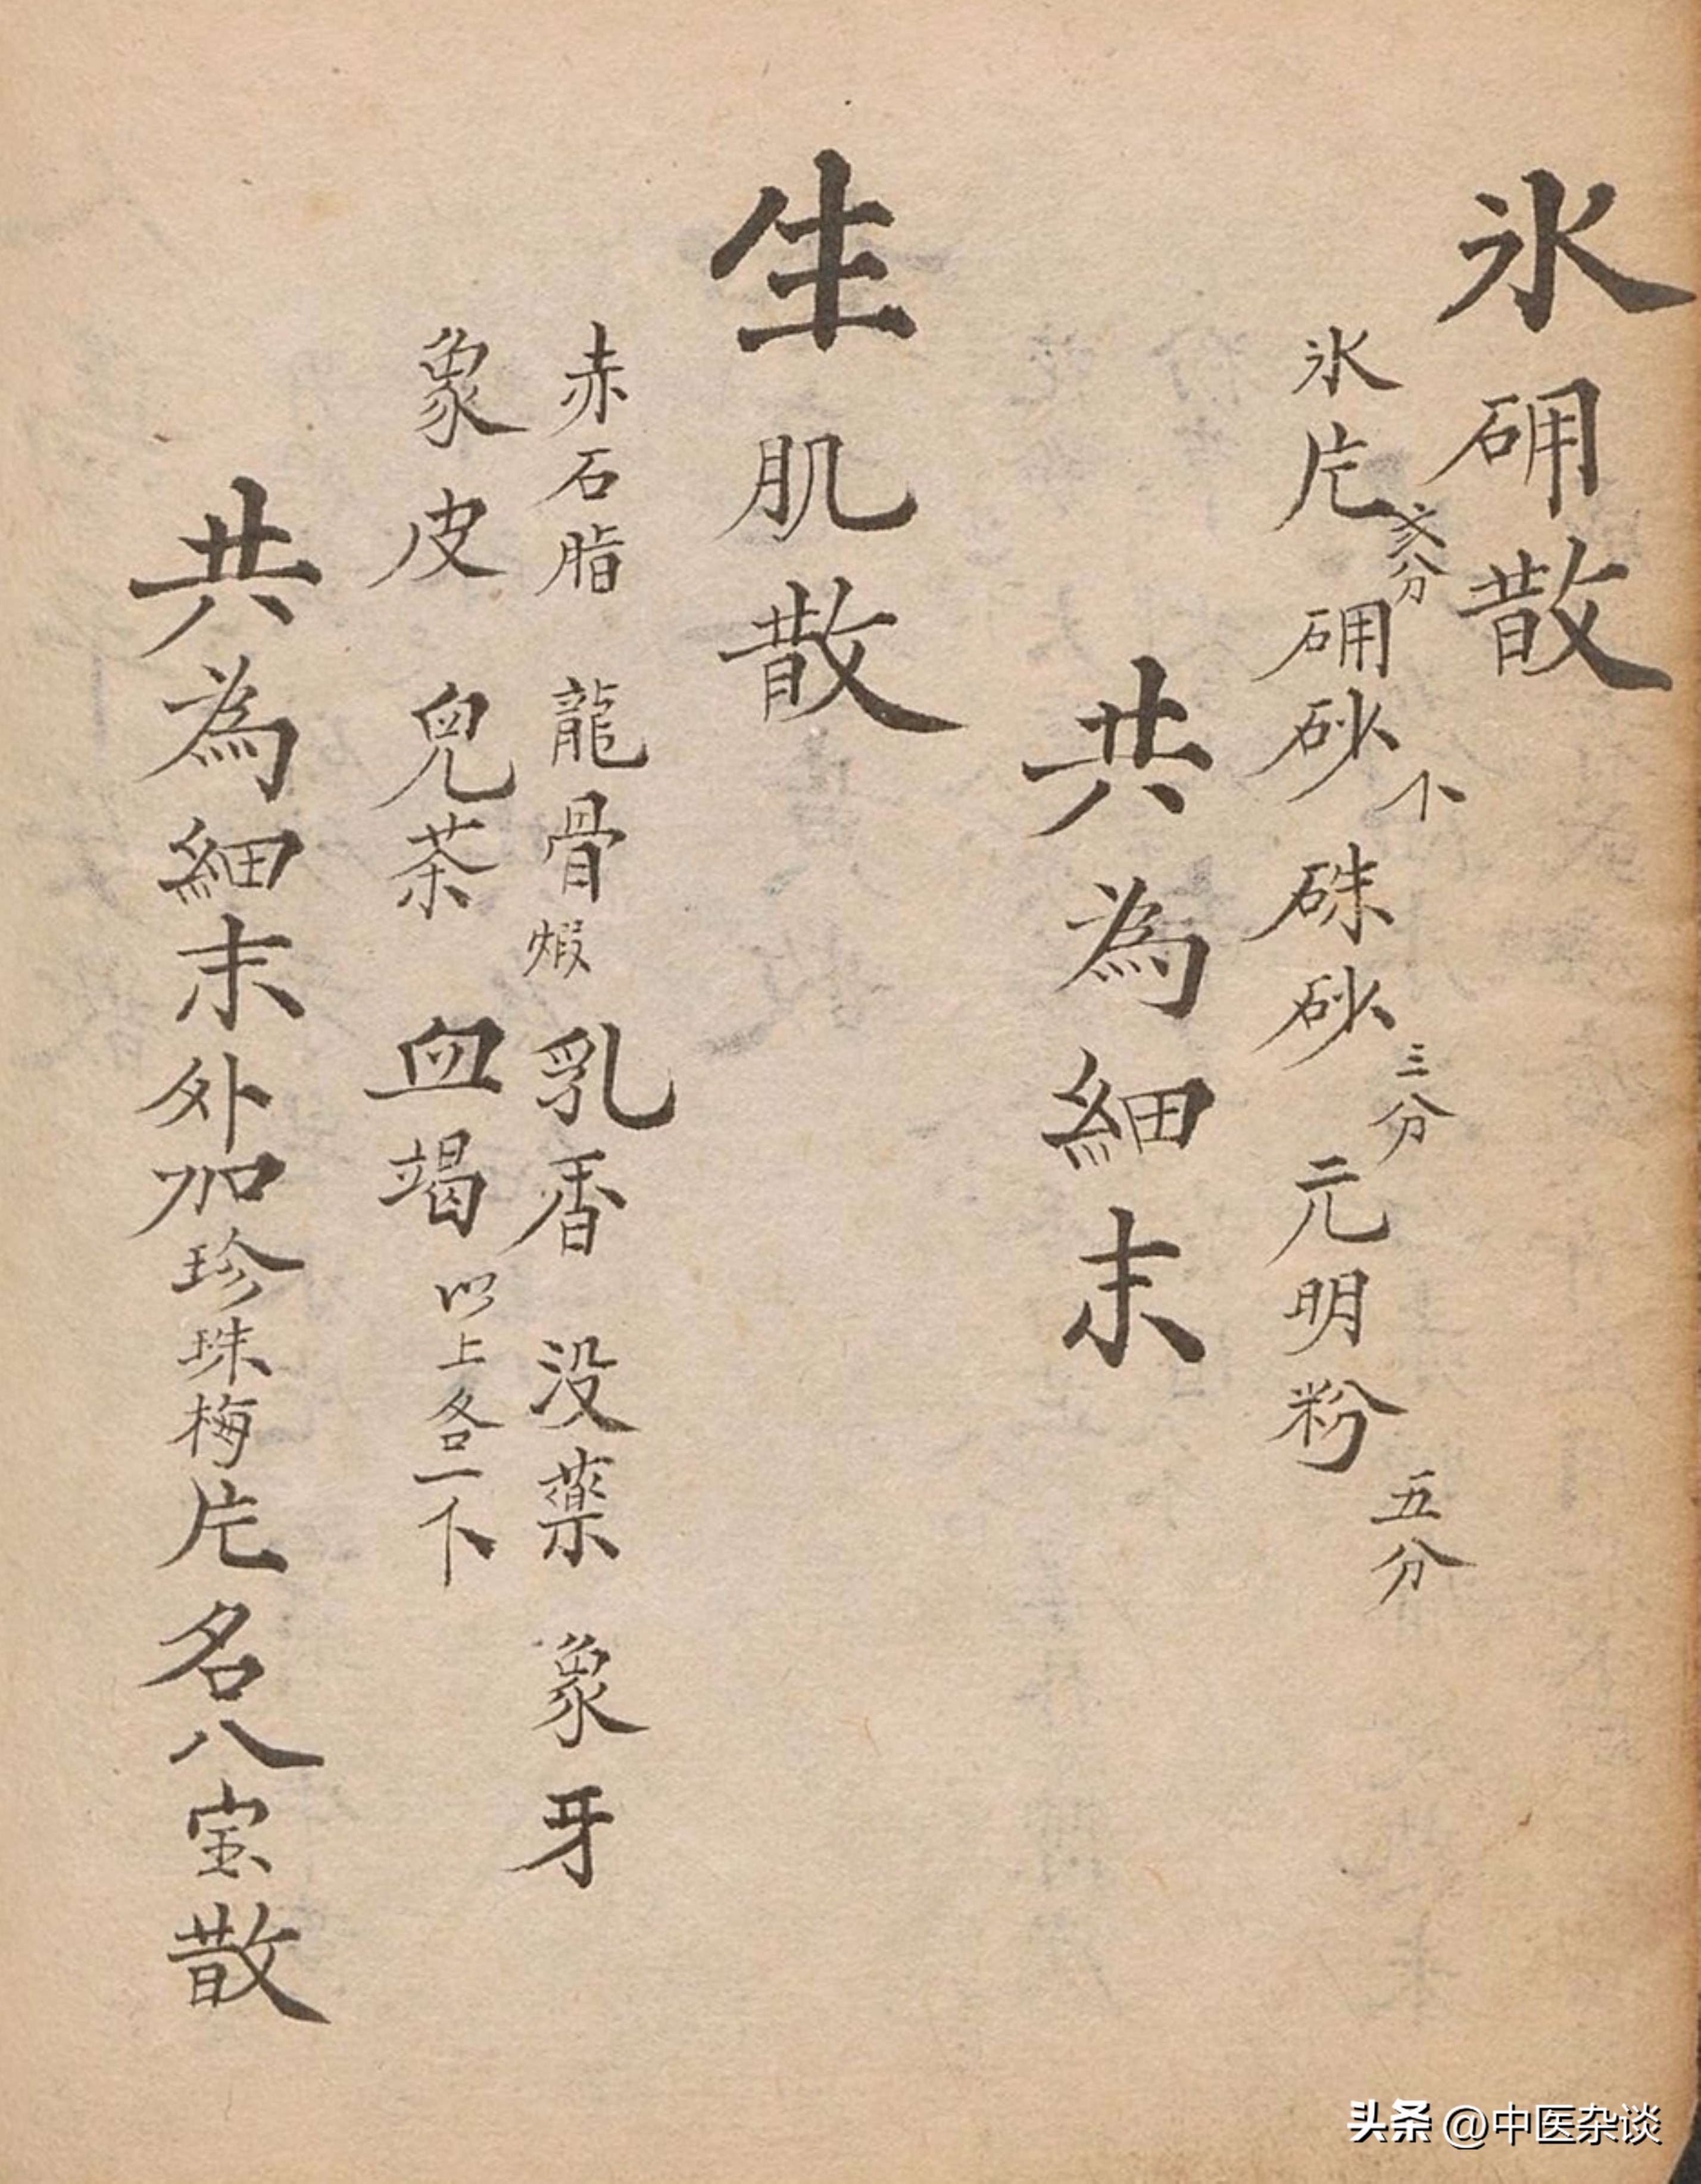 氷硼散
氷片 贰分 硼砂 个 硃砂 三分 元明粉 五分
共為細末
生肌散
赤石脂 龍骨 煆 乳香 没藥 象牙
象皮 兒茶 血竭 以上各一下
共為細末外加珍珠梅片名八宝散
头条 @中医杂谈